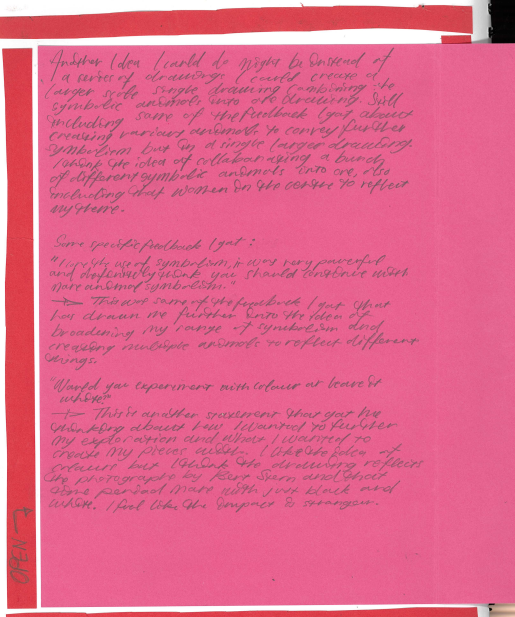 Another Idea I could do might be instead of
a series of drawings I could create a
larger scale single drawing combining the
symbolic animals into one drawing. Still
including some of the feedback I got about
creating various animals to convey further
symbolism but in a single larger drawing.
I think the idea of collaborating a bunch
of different symbolic animals into one, also
including that women in the centre to reflect
my theme.
Some specific feedback I got:
"I like the use of symbolism, it was very powerful
and definitely think you should continue with
more animal symbolism."
→ This was some of the feedback I got that
has drawn me further into the idea of
broadening my range of symbolism and
creating multiple animals to reflect different
things.
"Would you experiment with colour or leave it
white?"
→ This is another statement that got me
thinking about how I wanted to further
my exploration and what I wanted to
create my pieces with. I like the idea of
colour but I think the drawing reflects
the photographs by and that
time period more with just black and
white. I feel like the impact is stronger.
OPEN →